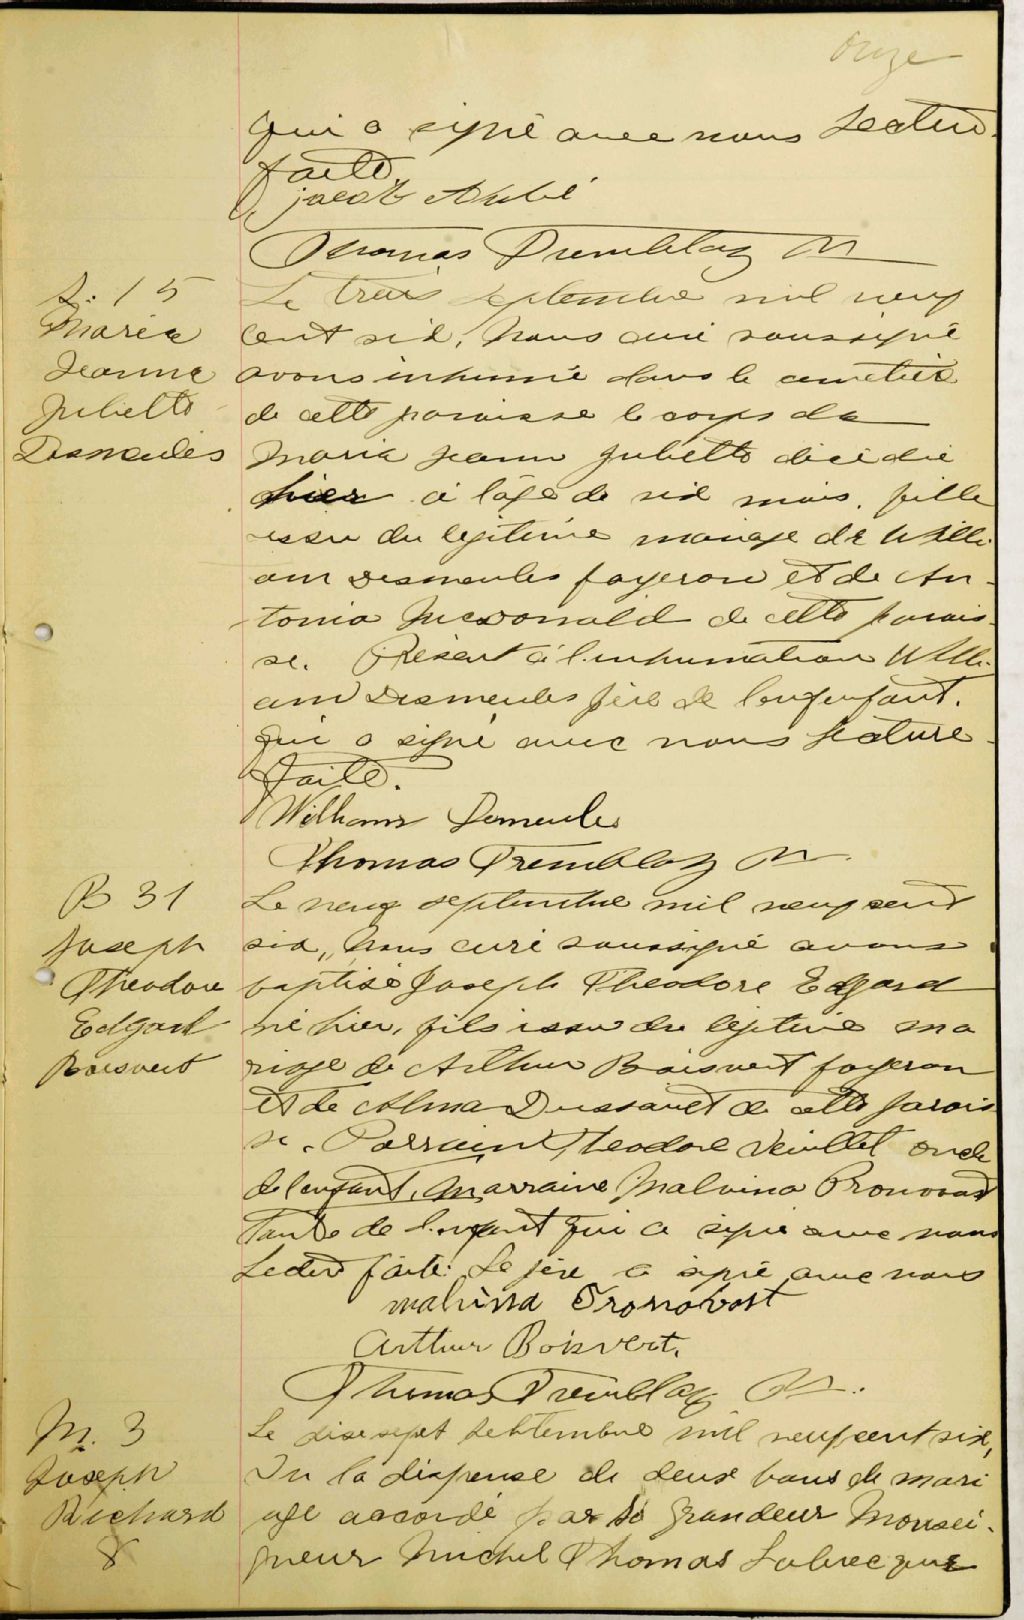 Onze
qui a signé avec nous Lecture
faite.
Jacob Aubé
Thomas Tremblay
S. 15
Maria
Jeanne
Juliette
Desmeules
Le trois septembre mil neuf
cent six, Nous curé soussigné
avons inhumé dans le cimetière
de cette paroisse le corps de
Maria Jeann Juliette décédée
hier à l'âge de six mois. fille
issu du légitime mariage de Willi
am Desmeules forgeron et de An-
tonia McDonald de cette parois-
se. Présent à l'inhumation Willi-
am Desmeules père de l'enfant.
qui a signé avec nous Lecture
faite.
William Demeules
Thomas Tremblay
B 31
Joseph
Theodore
Edgard
Boisvert
Le neuf septembre mil neuf cent
six, Nous curé soussigné avons
baptisé Joseph Theodore Edgard
né hier, fils issu du légitime ma
riage de Arthur Boisvert forgeron
et de Alma Dussault de cette parois
se. Parrain Theodore Veillet oncle
de l'enfant, Marraine Malvina Pronovost
Tante de l'enfant qui a signé avec nous
Lecture faite. Le père a signé avec nous
malvina Pronovost
Arthur Boisvert.
Thomas Tremblay
M. 3
Joseph
Richard
&
Le dix sept septembre mil neuf cent six,
Vu la dispense de deux bans de mari
age accordé par Sa Grandeur Monsei-
gneur Michel Thomas Labrecque